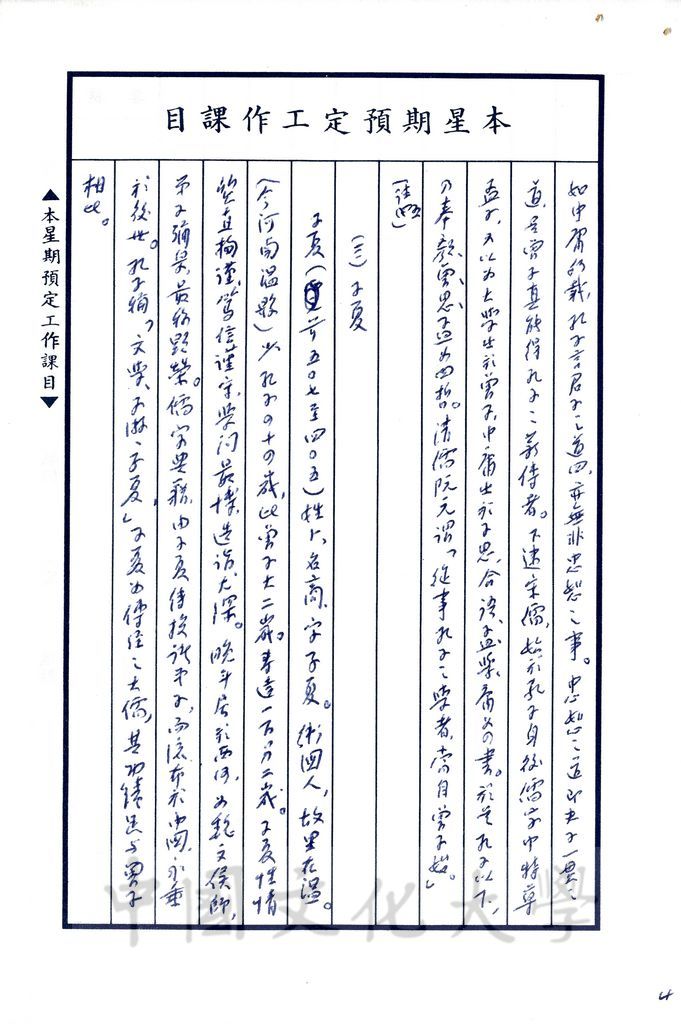 本星期預定工作課目
如中庸所載,孔子言君子之道四,亦無非忠恕之事。忠恕之道即夫子一貫之
道,是曾子真能得孔子之薪傳者。下逮宋儒,始於孔子身後儒家中特尊
孟子,又以為大學出於曾子,中庸出於子思,合語、孟、學、庸為四書。於是孔子以下,
乃奉顏、曾、思、孟為四哲。清儒阮元謂「從事孔子之學者,當自曾子始。」
(註五)
(三)子夏
子夏(前五〇七至四〇五)姓卜,名商,字子夏。衛國人,故里在溫。
(今河南溫縣)少孔子四十四歲,比曾子大二歲。壽達一百另二歲。子夏性情
質直拘謹,篤信謹守,學問最博,造詣尤深。晚年居於西河,為魏文侯師,
弟子彌眾,最稱顯榮。儒家典籍,由子夏傳授諸弟子,而流布於中國,永垂
於後世。孔子稱「文學,子游、子夏」子夏為傳經之大儒,其功績足與曾子
相比。
▲本星期預定工作課目▼
中國文化大學
4